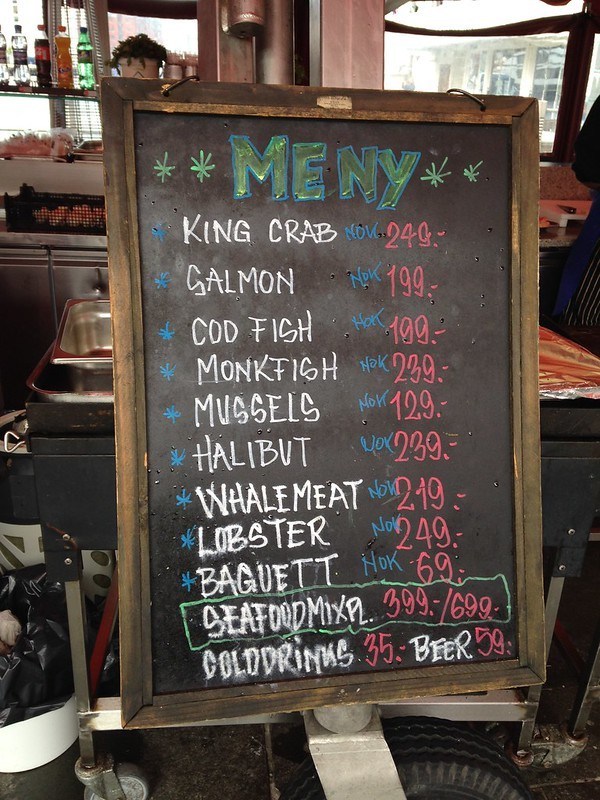 * * MENY * *
* KING CRAB NOK 249.-
* SALMON NOK 199.-
* COD FISH NOK 199.-
* MONKFISH NOK 239.-
* MUSSELS NOK 129.-
* HALIBUT NOK 239.-
* WHALEMEAT NOK 219.-
* LOBSTER NOK 249.-
* BAGUETT NOK 69.-
SEAFOODMIXPL. 399.-/699.-
COLDDRINKS 35.- BEER 59.-